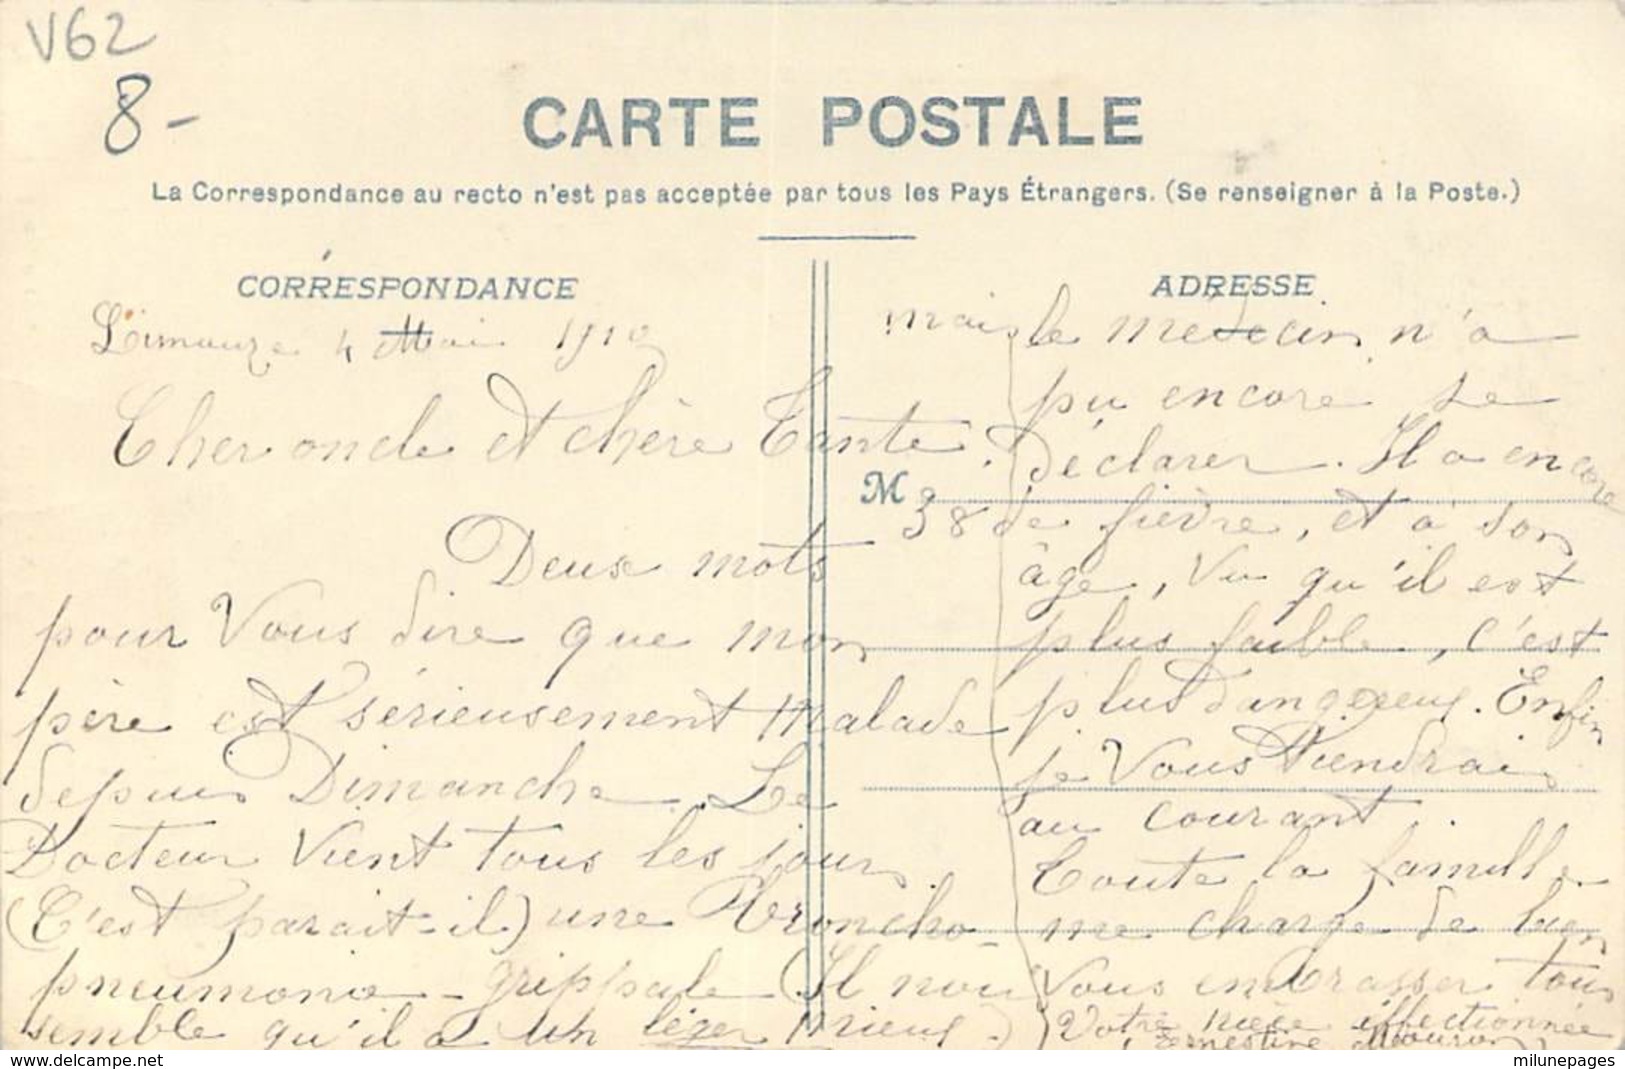 V62
8-
CARTE POSTALE
La Correspondance au recto n'est pas acceptée par tous les Pays Étrangers. (Se renseigner à la Poste.)
CORRESPONDANCE
4 Mai 1910
Cher oncle et chère Tante.
Deux mots
pour Vous dire que mon
père est sérieusement Malade
depuis Dimanche. Le
Docteur Vient tous les jours.
(C'est parait-il) une Broncho-
pneumonie - grippale (Il nous
semble qu'il a un léger mieux.)
ADRESSE
M
mais le médecin n'a
pu encore se
déclarer. Il a encore
38 de fièvre, et à son
âge, Vu qu'il est
plus faible, c'est
plus dangereux. Enfin
je Vous tiendrai
au courant.
Toute la famille
me charge de bien
Vous embrasser tous
Votre nièce affectionnée
Ernestine
milunepages